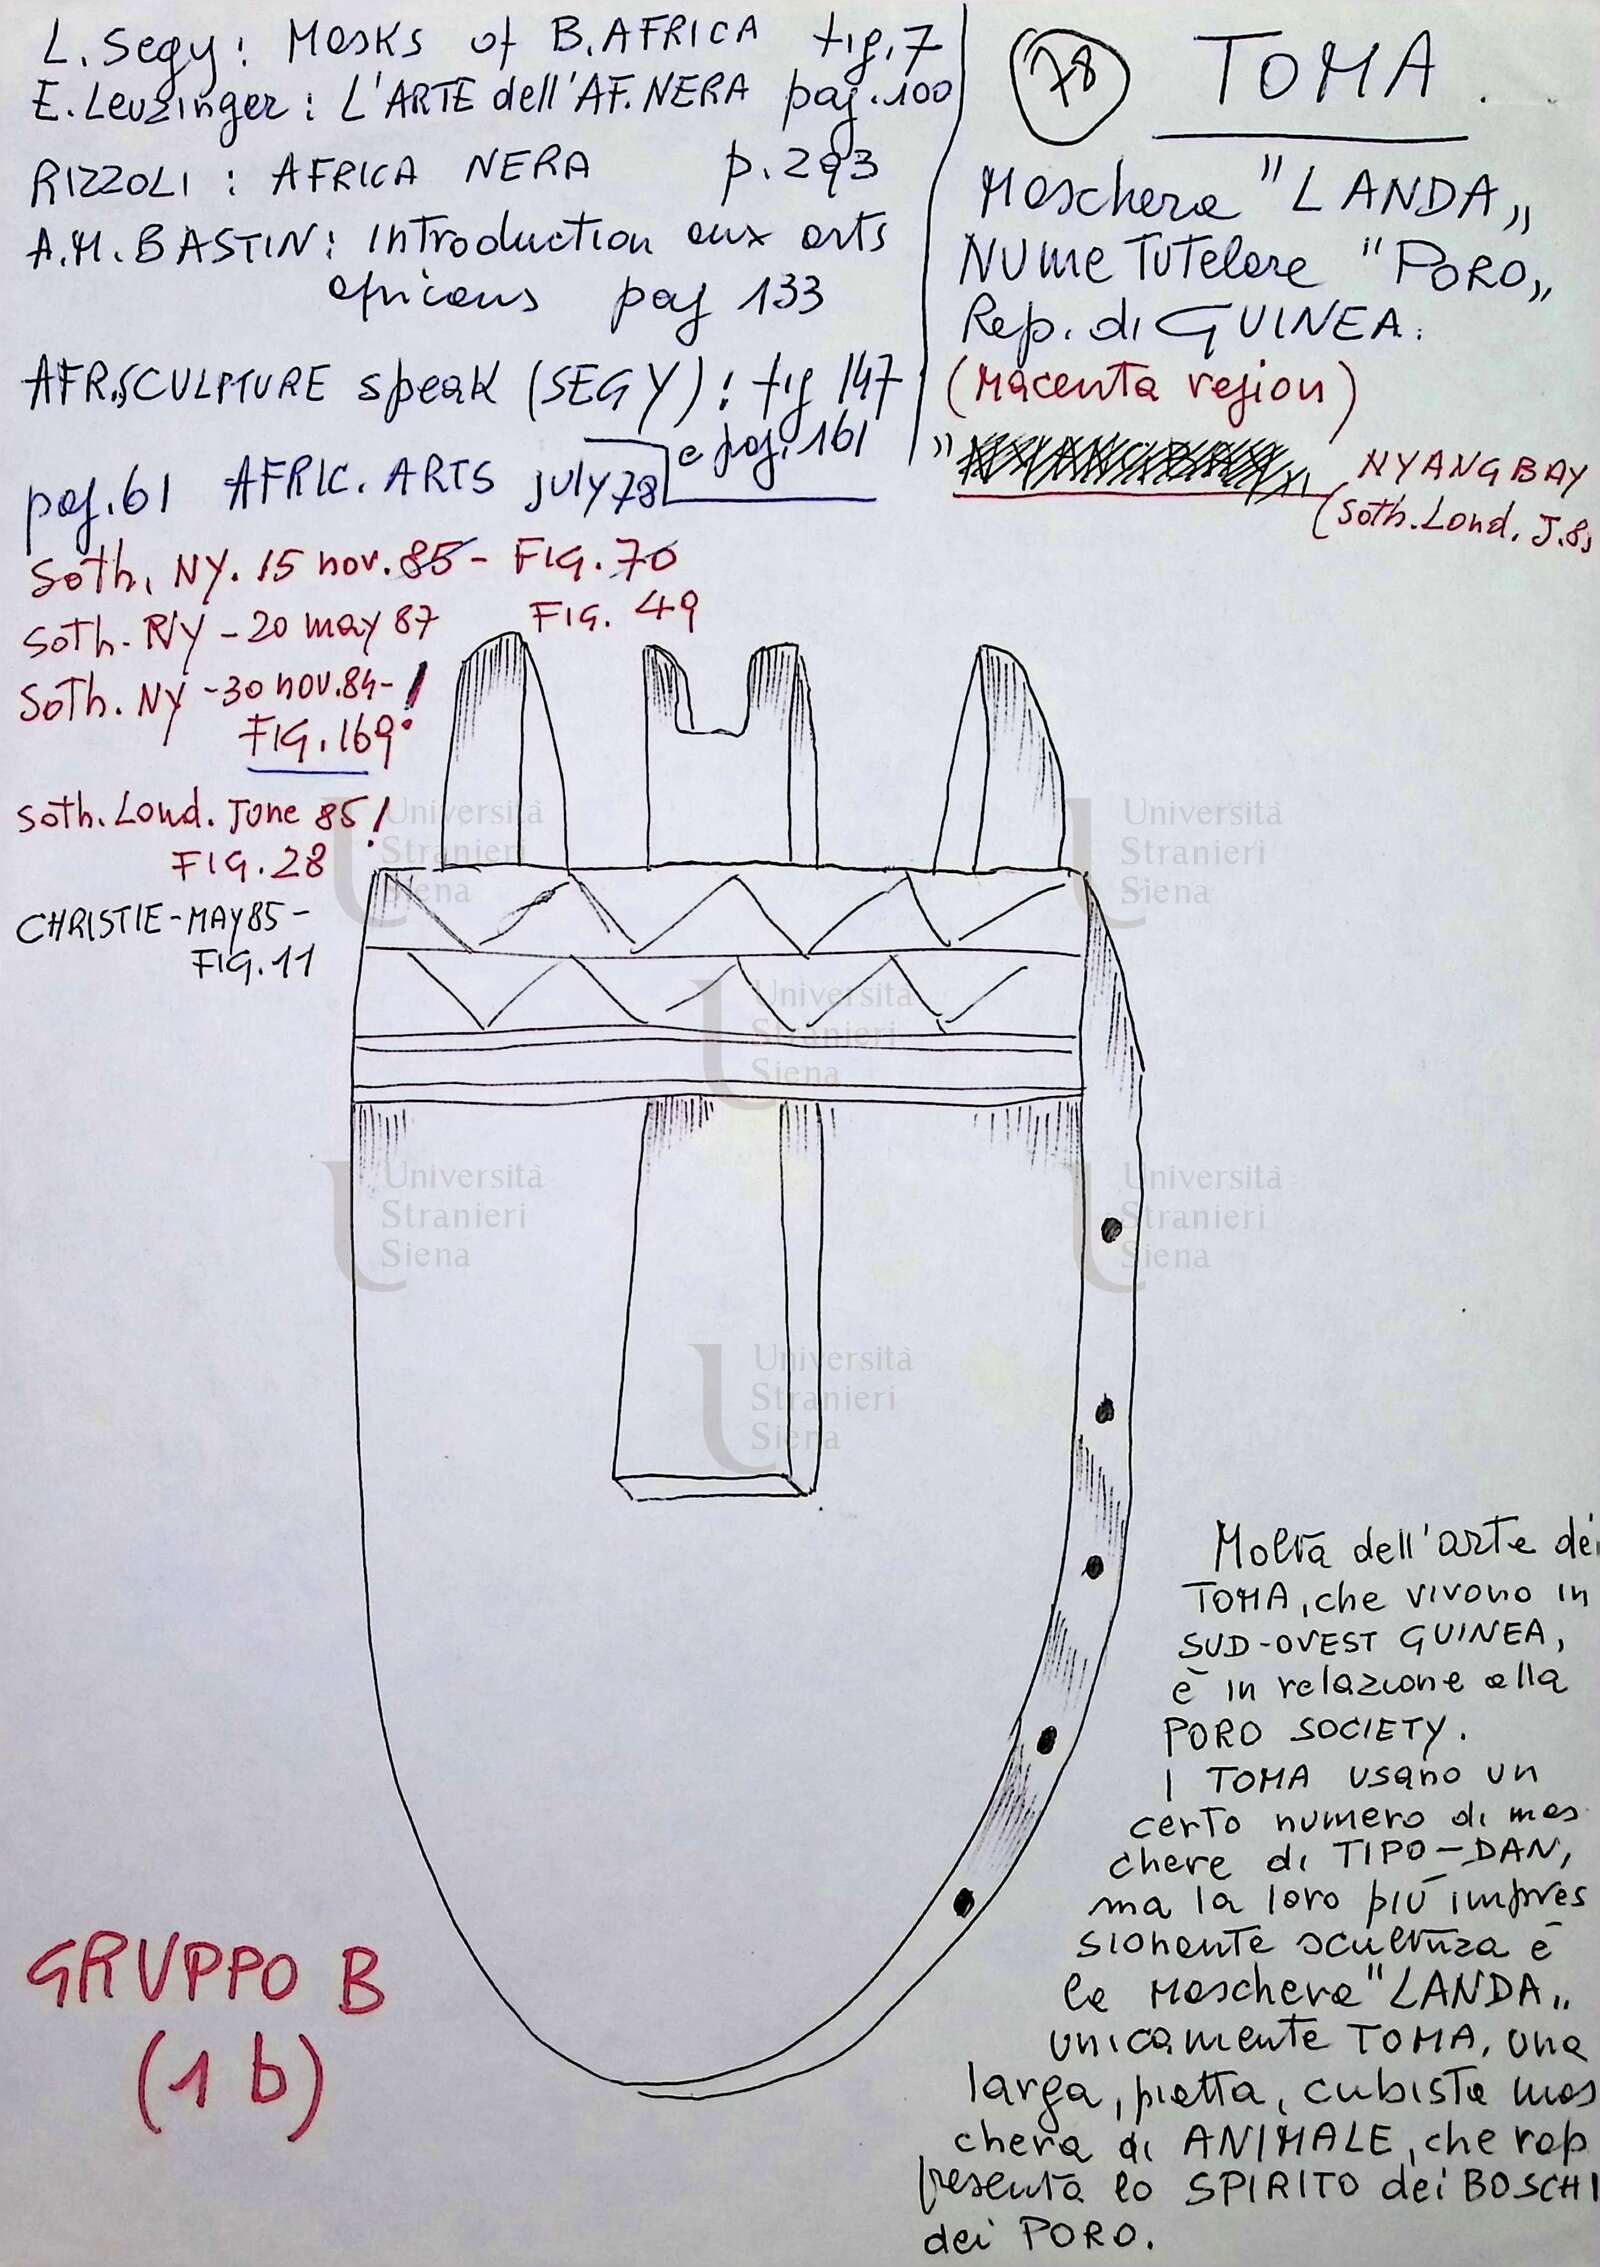 L. Segy: Masks of B. AFRICA fig. 7
E. Leuzinger: L'ARTE dell'AF. NERA pag. 100
RIZZOLI: AFRICA NERA p. 293
A.M. BASTIN: Introduction aux arts
africans pag 133
AFR. SCULPTURE speak (SEGY): fig 147
e pag. 161
pag. 61 AFRIC. ARTS july 78
Soth. NY. 15 nov. 85 - FIG. 70
Soth. NY - 20 may 87 FIG. 49
Soth. NY - 30 nov. 84 - !
FIG. 169
Soth. Lond. June 85!
FIG. 28
CHRISTIE - MAY 85 -
FIG. 11
78 TOMA
Maschera "LANDA„
NUME TUTelare "PORO„
Rep. di GUINEA.
(Macenta region)
NYANGBAY
(Soth. Lond. J. 85
Molta dell'arte dei
TOMA, che vivono in
SUD-OVEST GUINEA,
è in relazione alla
PORO SOCIETY.
I TOMA usano un
certo numero di mas
chere di TIPO-DAN,
ma la loro più impres
sionante scultura è
la Maschera "LANDA„
unicamente TOMA, una
larga, piatta, cubista mas
chera di ANIMALE, che rap
presenta lo SPIRITO dei BOSCHI
dei PORO.
GRUPPO B
(1 b)
Università
Stranieri
Siena
Università
Stranieri
Siena
Università
Stranieri
Siena
Università
Stranieri
Siena
Università
Stranieri
Siena
Università
Stranieri
Siena